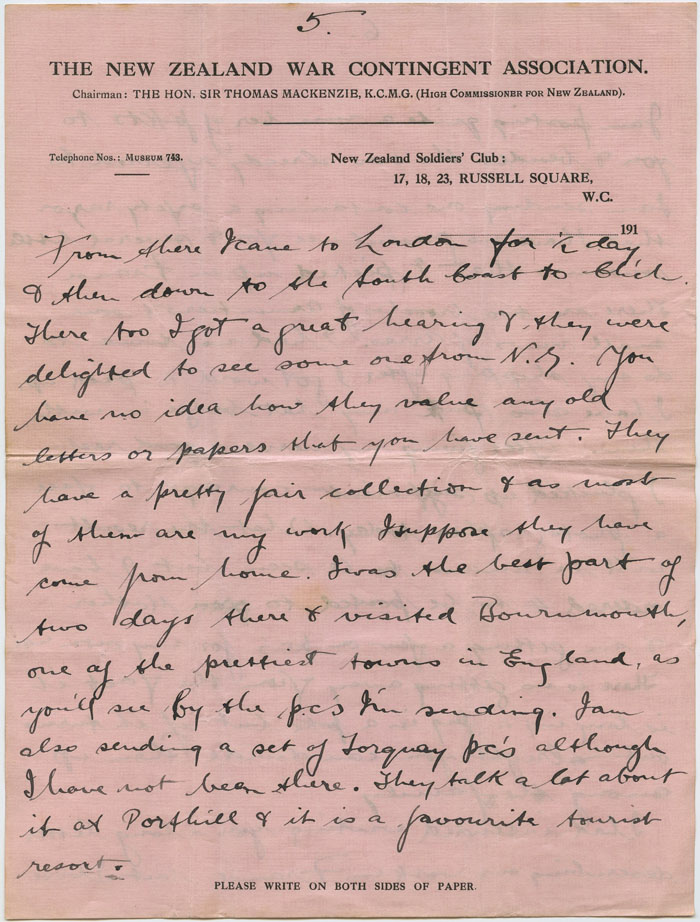 5.
THE NEW ZEALAND WAR CONTINGENT ASSOCIATION.
Chairman: THE HON. SIR THOMAS MACKENZIE, K.C.M.G. (HIGH COMMISSIONER FOR NEW ZEALAND).
Telephone Nos.: MUSEUM 743.
New Zealand Soldiers' Club:
17, 18, 23, RUSSELL SQUARE,
W.C.
191
From there I came to London for ½ day
& then down to the South Coast to
There too I got a great hearing & they were
delighted to see some one from N.Z. You
have no idea how they value any old
letters or papers that you have sent. They
have a pretty fair collection & as most
of them are my work I suppose they have
come from home. I was the best part of
two days there & visited Bournmouth,
one of the prettiest towns in England, as
you'll see by the p.c's I'm sending. I am
also sending a set of Torquay p.c's although
I have not been there. They talk a lot about
it at Porthill & it is a favourite tourist
resort.
PLEASE WRITE ON BOTH SIDES OF PAPER.